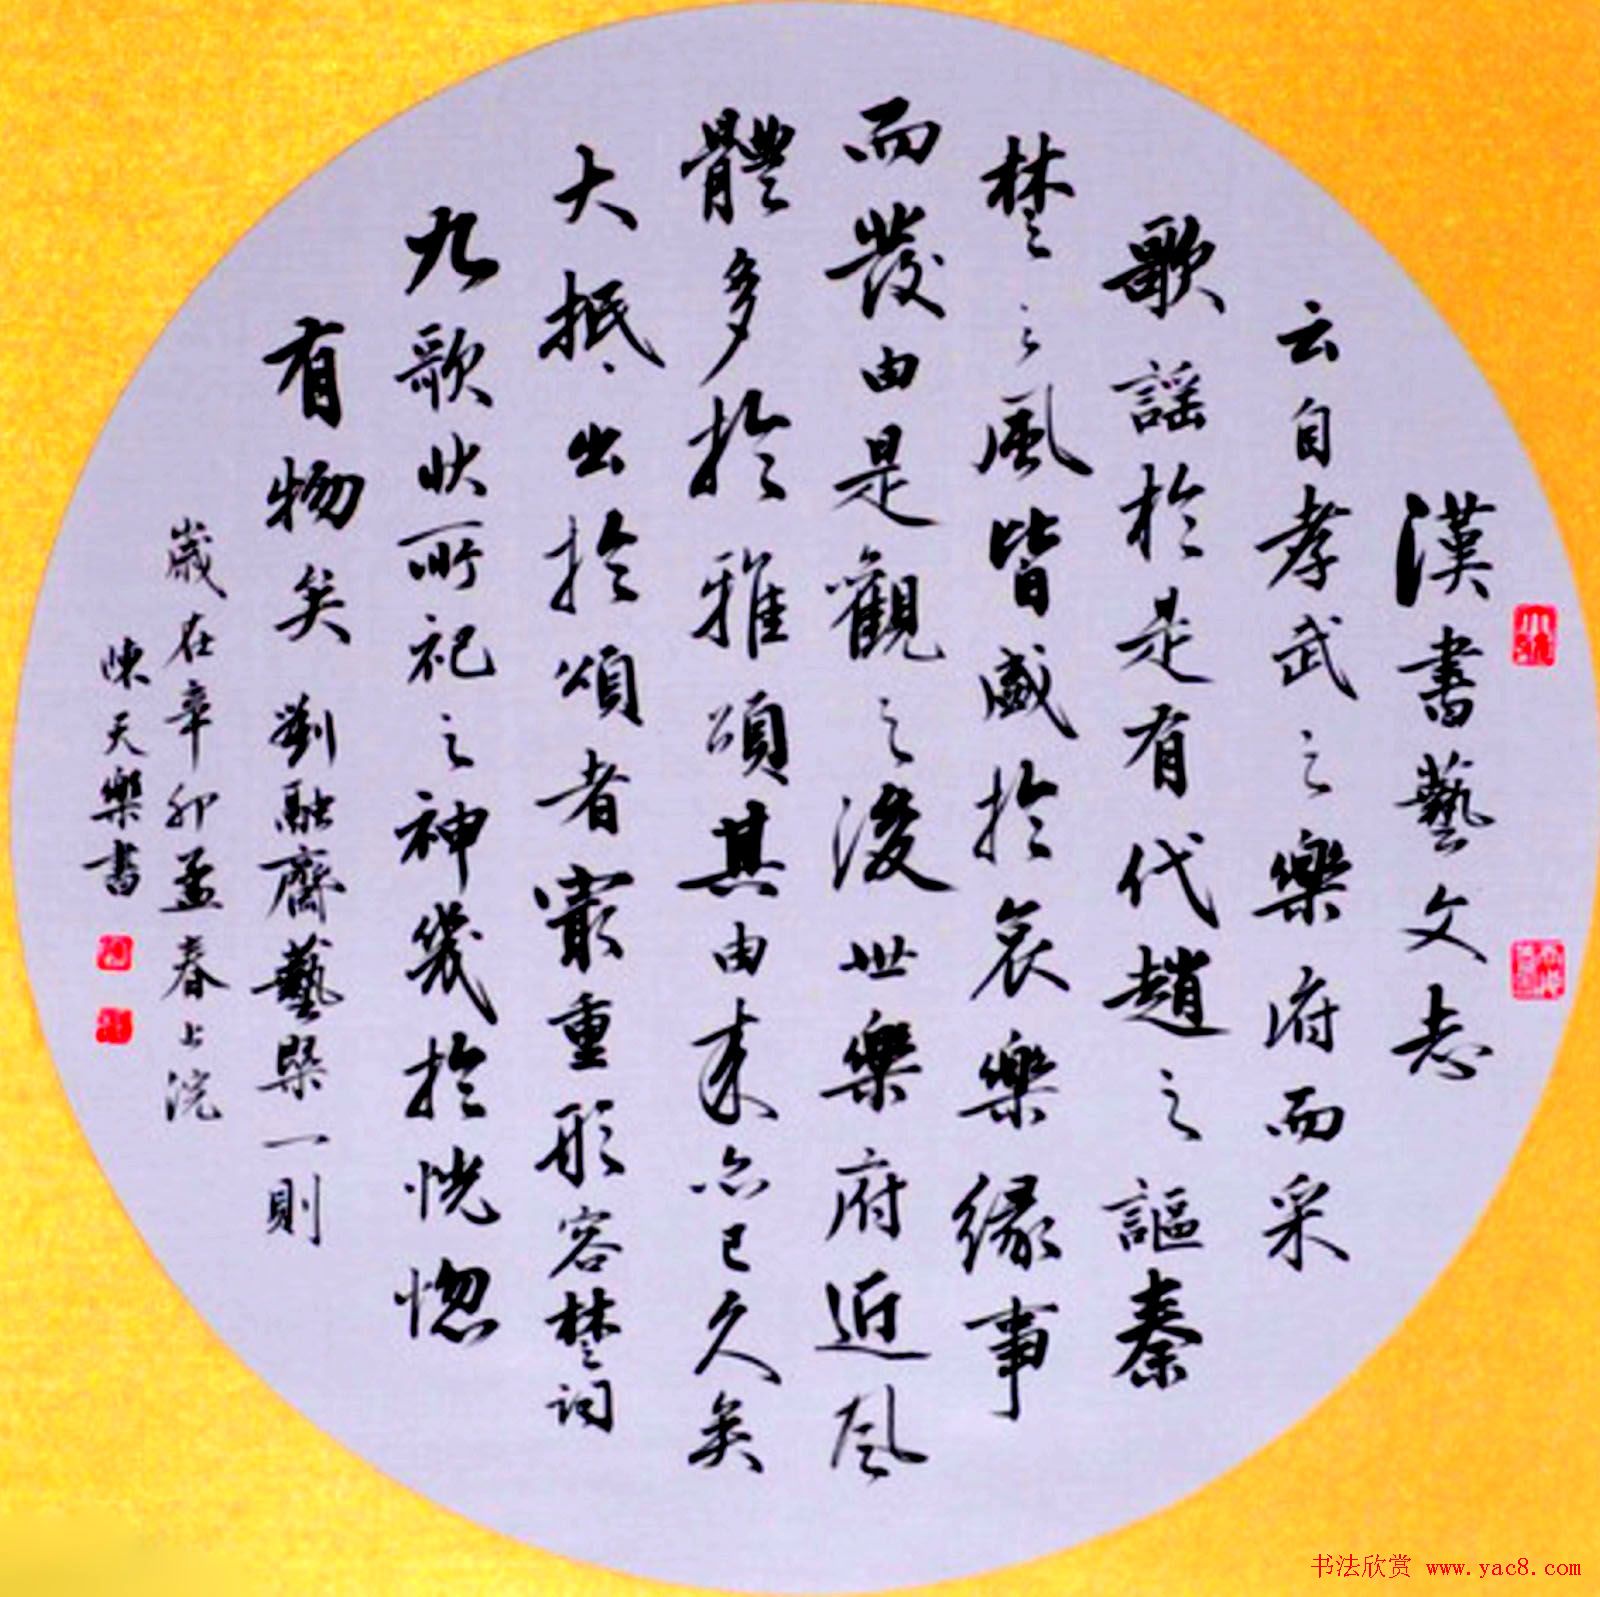 漢書藝文志
云自孝武之樂府而采
歌謡於是有代趙之謳秦
楚之風皆感於哀樂緣事
而發由是觀之後世樂府近風
體多於雅頌其由来亦已久矣
大抵出於頌者最重形容楚詞
九歌狀所祀之神幾於恍惚
有物矣 劉融齋藝槩一則
歲在辛卯孟春上浣
陳天樂書
书法欣赏 www.yac8.com